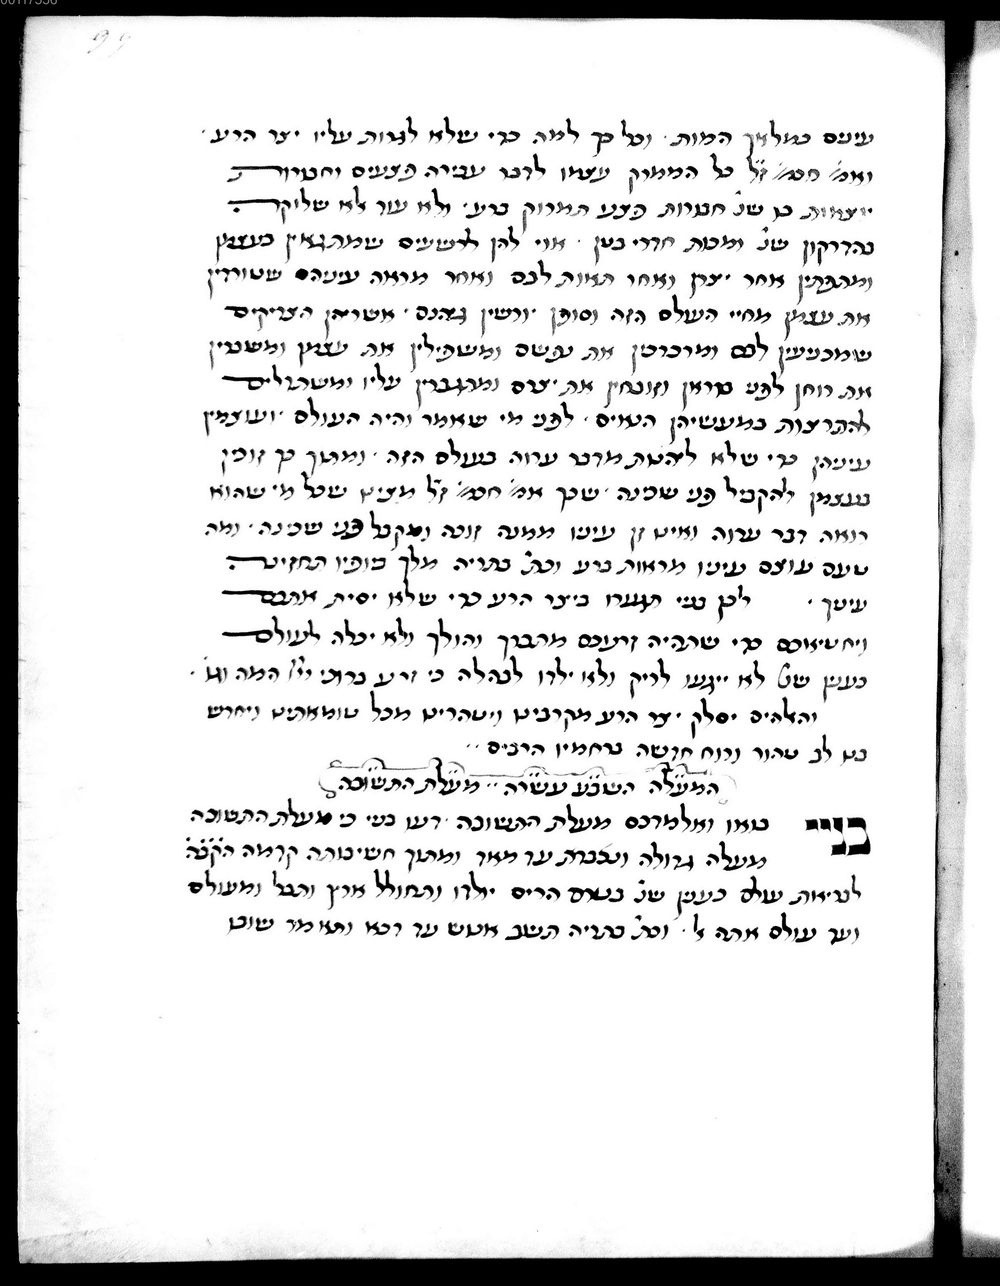 עינים כמלאך המות · וכל כך למה כדי שלא לגרות עליו יצר הרע ·
ואמ' חכמ' ז"ל כל הממרק עצמו לדבר עבירה פצעים וחבורות
יוצאות בו שנ' חבורות פצע תמרוק ברע · ולא עוד אלא שלוקה
בהדרקון שנ' ומכות חדרי בטן · אוי להן לרשעים שמתגאין בעצמן
ומהלכין אחר יצרן ואחר תאות לבם ואחר מראה עיניהם שטורדין
את עצמן מחיי העולם הזה וסופן יורשין גהנם · אשריהן הצדיקים
שמכניעין לבם ומדכדכין את נפשם ומשפילין את עצמן ומשברין
את רוחן לפני בוראן וזובחין את יצרם ומתגברין עליו ומשתדלים
להתרצות במעשיהן הטובים · לפני מי שאמר והיה העולם · ועוצמין
עיניהן כדי שלא ליהנות מדבר ערוה בעולם הזה · ומתוך כך זוכין
בעצמן להקביל פני שכינה · שכך אמ' חכמ' ז"ל מצינו שכל מי שהוא
רואה דבר ערוה ואינו זן עיניו ממנה זוכה ומקבל פני שכינה · ומה
טעם עוצם עיניו מראות ברע וכת' בתריה מלך ביופיו תחזינה
עיניך · לכן בניי תגערו ביצר הרע כדי שלא יסית אתכם
ויחטיאכם כדי שתהיה זרעכם מתברך והולך ולא יכלה לעולם
כענין שנ' לא ייגעו לריק ולא ילדו לבהלה כי זרע ברוכי יי' המה וגו' ·
והאלהים יסלק יצר הרע מקרבינו ויטהרינו מכל טומאתינו ויחדש
בנו לב טהור ורוח חדשה ברחמיו הרבים ··
המעלה השבע עשרה ·· מעלת התשובה
בניי בואו ואלמדכם מעלת התשובה · דעו בניי כי מעלת התשובה
מעלה גדולה ונכבדת עד מאד ומתוך חשיבותה קדמה הקבה
לבריאת עולם כענין שנ' בטרם הרים יולדו ותחולל ארץ ותבל ומעולם
ועד עולם אתה אל · וכת' בתריה תשב אנוש עד דכא ותאמר שובו